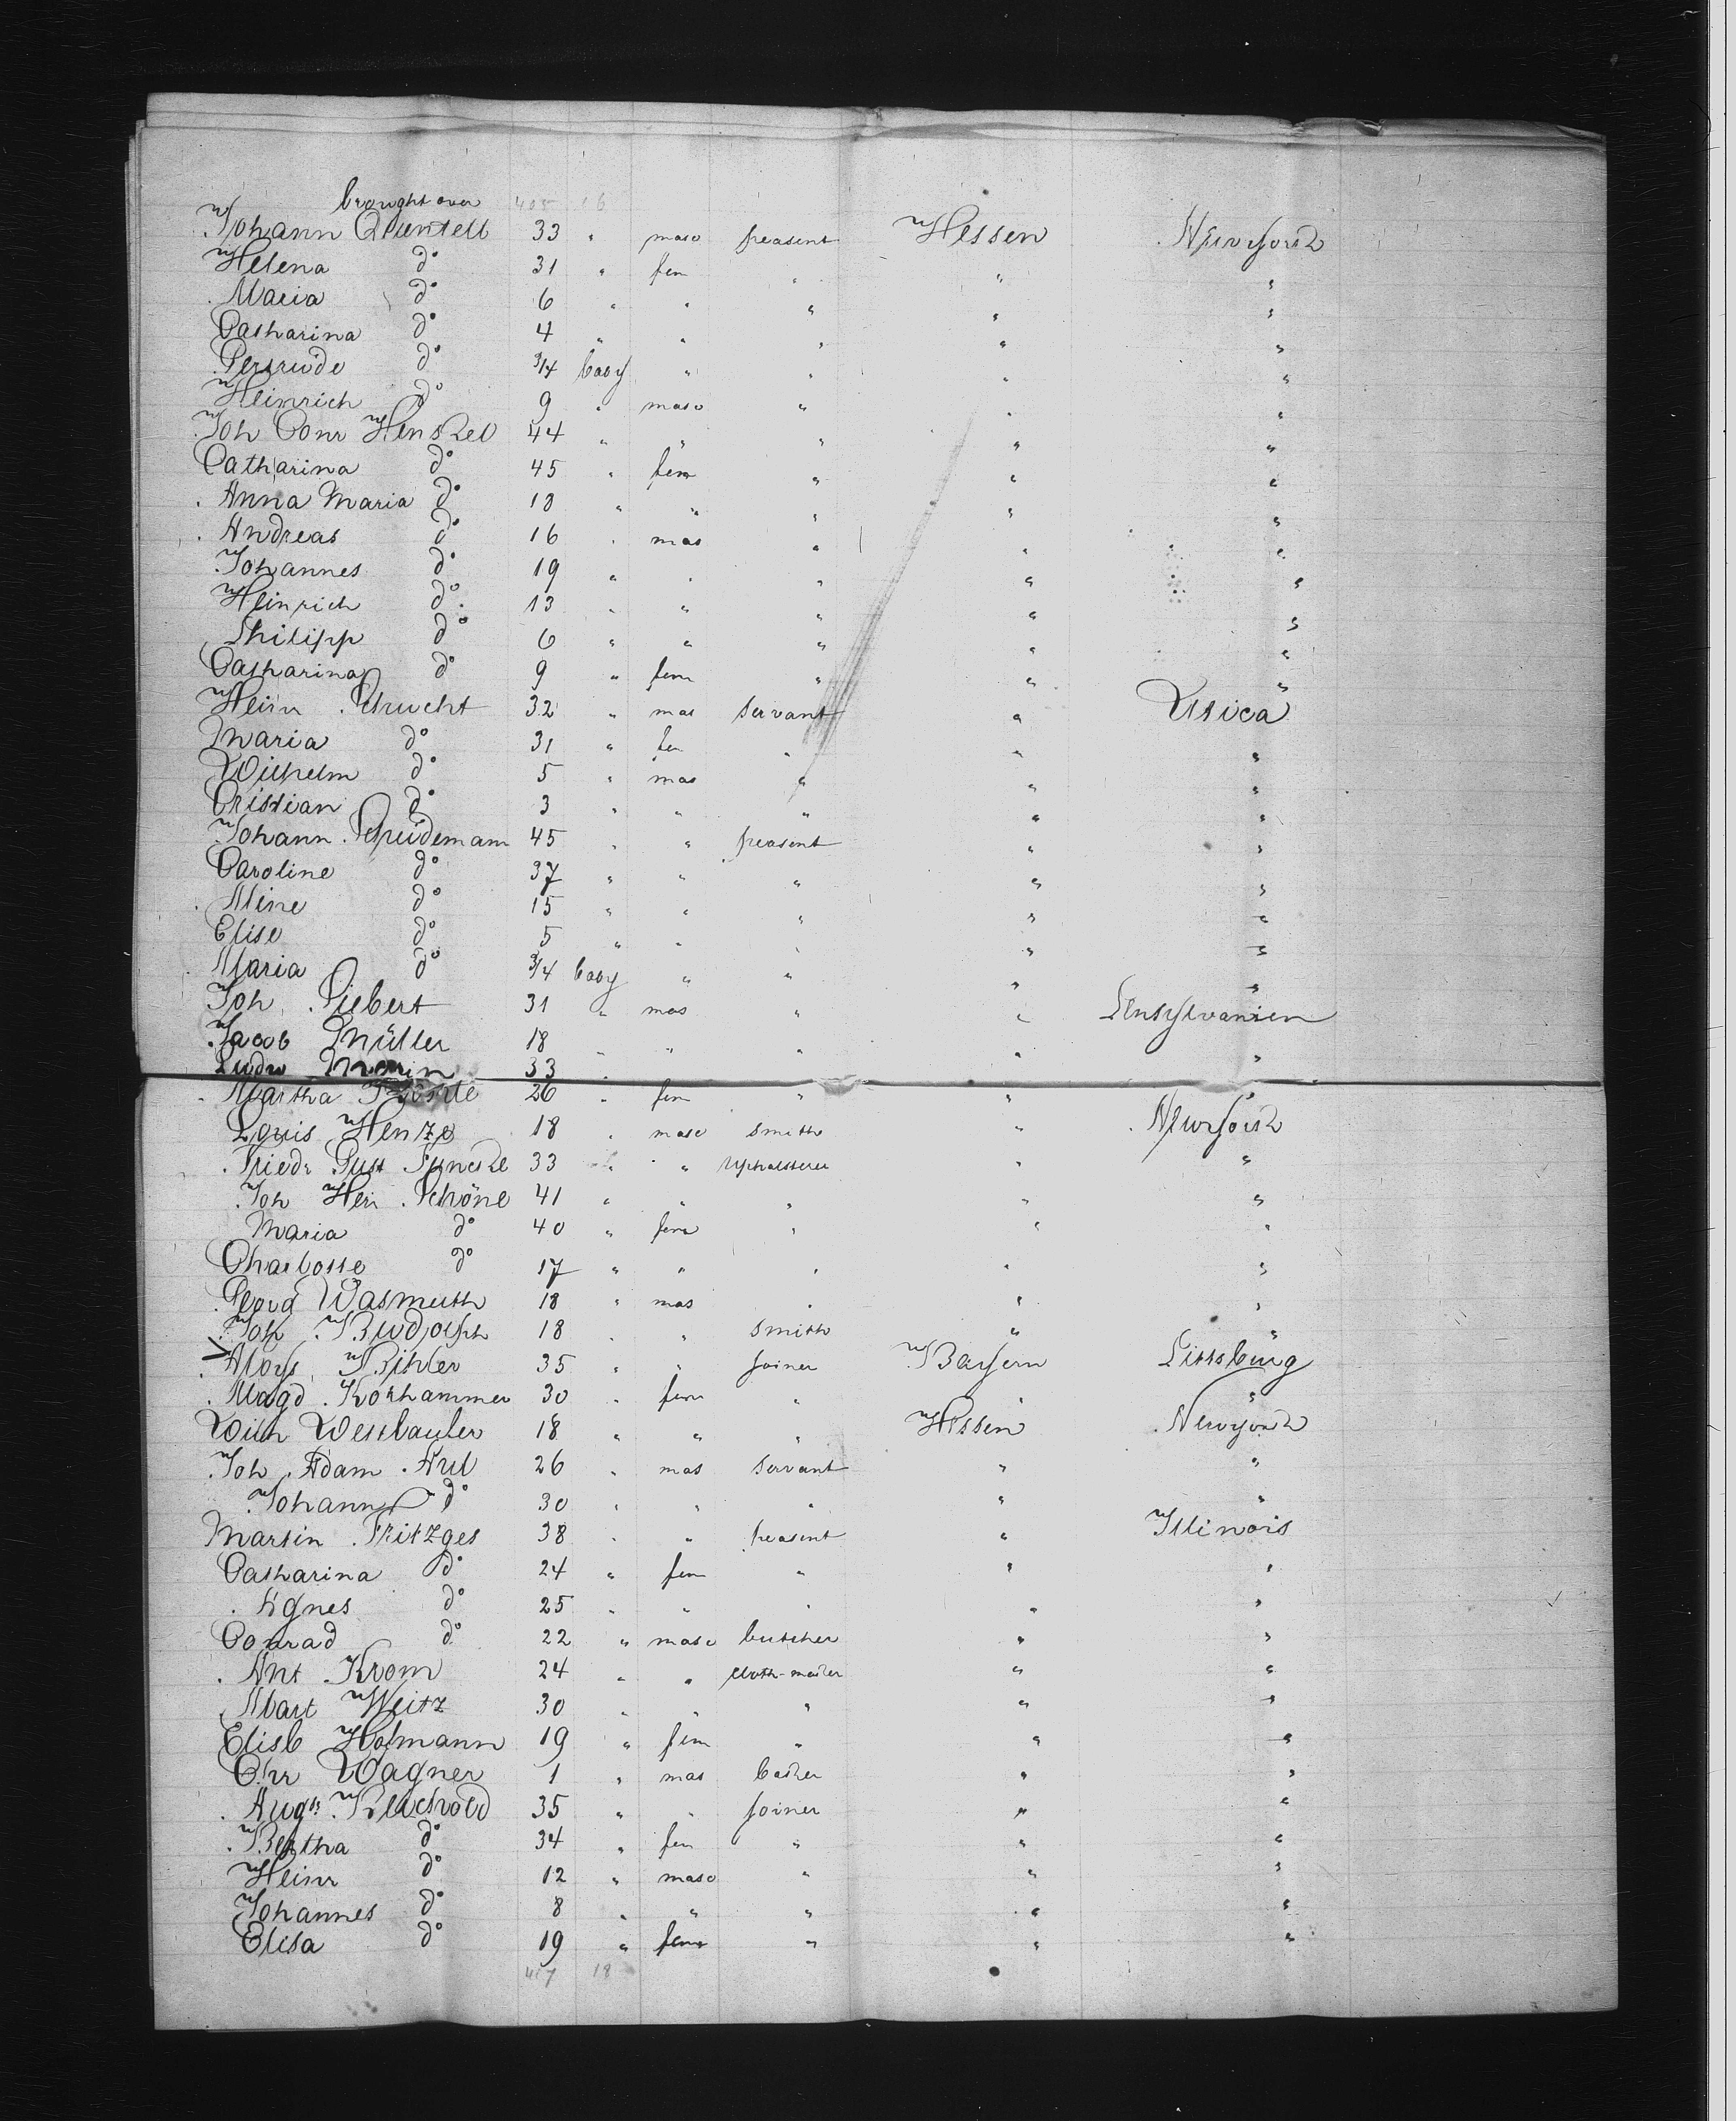 brought over 405 16
Johann Quentell 33 " masc peasent Hessen Newyork
Helena do 31 " fem " " "
Maria do 6 " " " " "
Catharina do 4 " " " " "
Gertrude do 3/4 baby " " " "
Heinrich do 9 " masc " " "
Joh Conr Henkel 44 " " " " "
Catharina do 45 " fem " " "
Anna Maria do 18 " " " " "
Andreas do 16 " mas " " "
Johannes do 19 " " " " "
Heinrich do 13 " " " " "
Philipp do 6 " " " " "
Catharina do 9 " fem " " "
Heinr Schucht 32 " mas servant " Utica
Maria do 31 " fem " " "
Wilhelm do 5 " mas " " "
Cristian do 3 " " " " "
Johann Scheidemann 45 " " peasent " "
Caroline do 37 " " " " "
Mine do 15 " " " " "
Elise do 5 " " " " "
Maria do 3/4 baby " " " "
Joh Siebert 31 " mas " " Pensylvanien
Jacob Müller 18 " " " " "
Ludw 33 "
Martha 26 " fem " "
Louis Henze 18 " masc smith " Newyork
Friedr Gust 33 " " Upholsterer " "
Joh Hen Schöne 41 " " " " "
Maria do 40 " fem " " "
Charlotte do 17 " " " " "
Georg Wasmuth 18 " mas " " "
Joh Rudolph 18 " " smith " "
Aloys 35 " " joiner Bayern Pittsburg
Magd Korhammer 30 " fem " " "
Wilh 18 " " " Hessen Newyork
Joh Adam Aul 26 " mas servant " "
Johann do 30 " " " " "
Martin Fritzges 38 " " peasent " Illinois
Catharina do 24 " fem " " "
Agnes do 25 " " " " "
Conrad do 22 " masc butcher " "
Ant Krom 24 " " cloth-maker " "
Mart Weitz 30 " " " " "
Elisb Hofmann 19 " fem " " "
Chr Wagner 1 " mas backer " "
Augst 35 " " joiner " "
Bertha do 34 " fem " " "
Heinr do 12 " masc " " "
Johannes do 8 " " " " "
Elisa do 19 " fem " " "
417 18